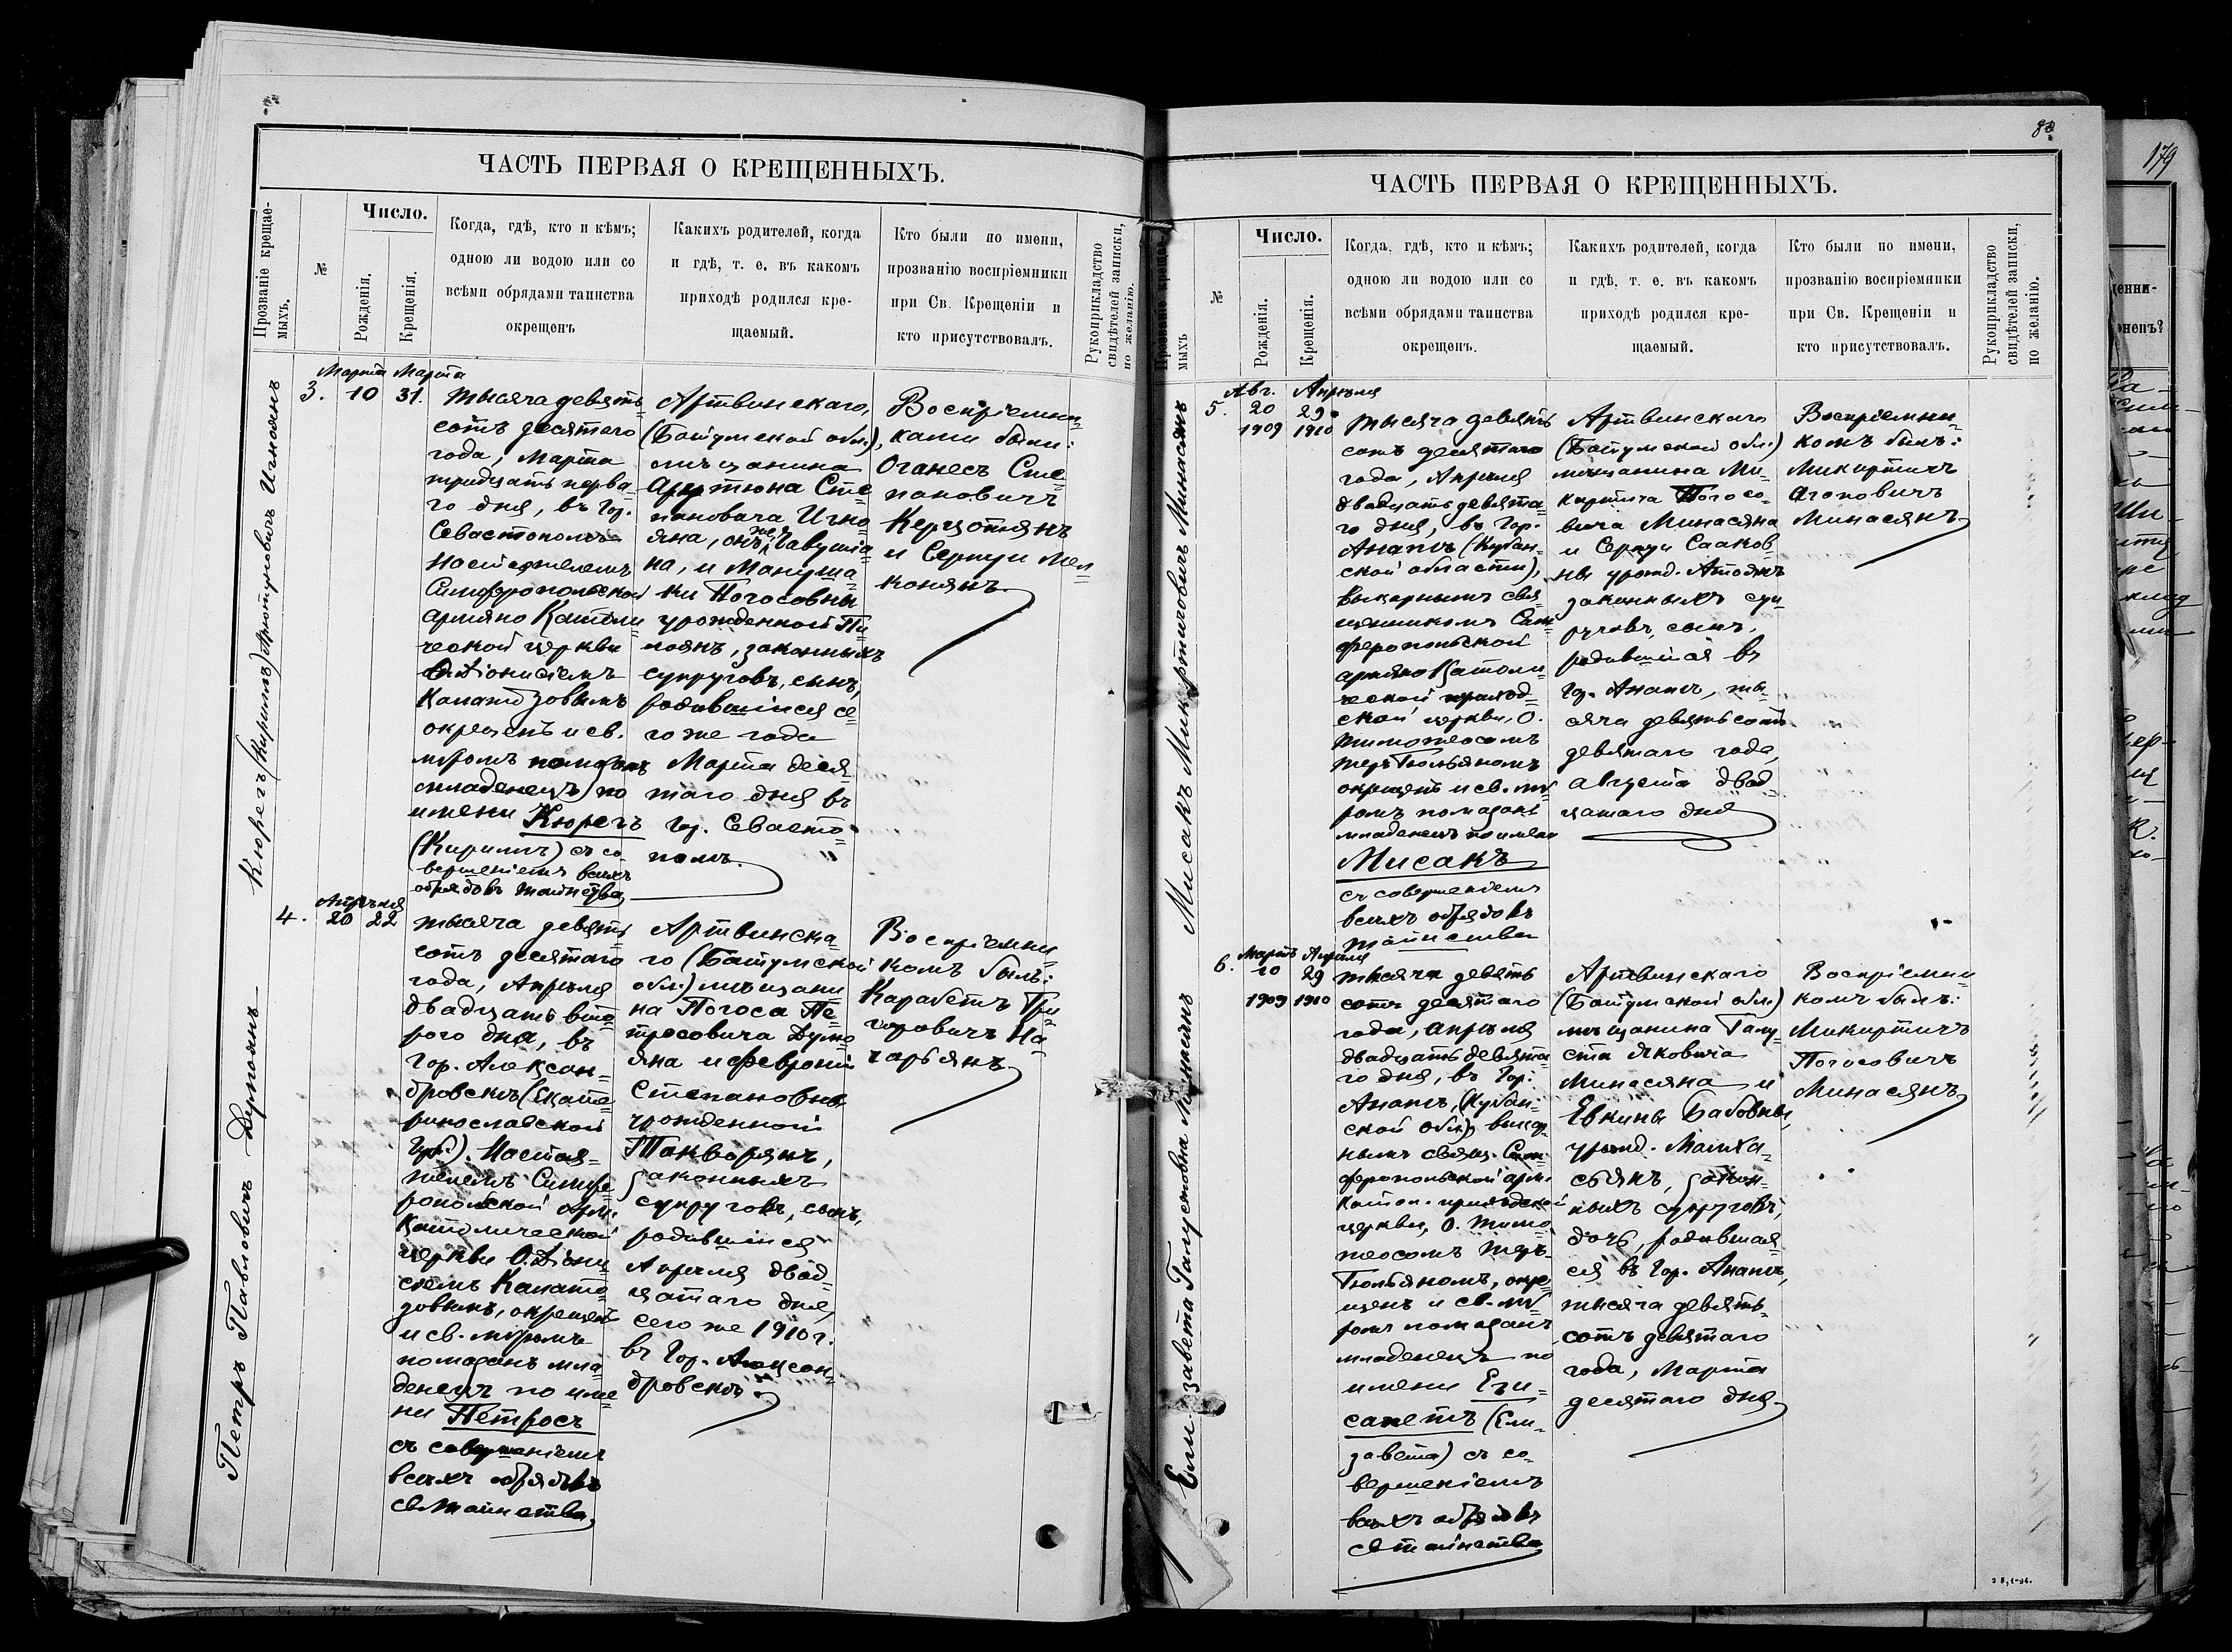 ЧАСТЬ ПЕРВАЯ О КРЕЩЕННЫХЪ.
Прозваніе крещае-
мыхъ.
№
Число.
Рожденія.
Крещенія.
Когда, гдѣ, кто и кѣмъ;
одною ли водою или со
всѣми обрядами таинства
окрещенъ
Какихъ родителей, когда
и гдѣ, т. е. въ какомъ
приходѣ родился кре-
щаемый.
Кто были по имени,
прозванію воспріемники
при Св. Крещеніи и
кто присутствовалъ.
Рукоприкладство
свидѣтелей записки,
по желанію.
Кюрегъ (Кириллъ) Арютуновичъ Игноянъ
3.
Марта
10
Марта
31.
тысяча девять
сотъ десятаго
года, Марта
тридцать перва
го дня, въ гор.
Севастополѣ
настоятелемъ
Симферопольской
армяно Католи
ческой церкви
О. Діонисіемъ
окрещенъ и св.
мѵромъ помазанъ
младенецъ по
имени Кюрегъ
(Кириллъ) съ со
вершеніемъ всѣхъ
обрядовъ таинства
Артвинскаго,
(Батумской обл.),
мѣщанина
Арютюна Сте
пановича Игно
яна, онъ же Чавушіа
на, и Мануша
ки Погосовны
урожденной
законныхъ
супруговъ, сынъ,
родившійся се
го же года
Марта деся
таго дня въ
гор. Севасто
полѣ.
Воспріемни
ками были:
Оганесъ Сте
пановичъ
Керцотянъ
и Сернуи Мел
конянъ
Петръ Павловичъ Думоянъ
4.
Апрѣля
20 22
тысяча девять
сотъ десятаго
года, Апрѣля
двадцать вто
рого дня, въ
гор. Алексан-
дровскѣ (Екате
ринославской
Губ.). Настоя-
телемъ Симфе
ропольской арм.
Католической
церкви О. Діони
сіемъ Капато
зовымъ, окрещенъ
и св. мѵромъ
помазанъ мла
денецъ по име
ни Петросъ
съ совершеніемъ
всѣхъ обрядовъ
св. таинства
Артвинска-
го (Батумской
обл.) мѣщани
на Погоса Пе
тросовича Думо
яна и Февроніи
Степановны
урожденной
Такворянъ,
законныхъ
супруговъ, сынъ,
родившійся
Апрѣля двад-
цатаго дня,
сего же 1910 г.
въ гор. Алексан-
дровскѣ.
Воспріемни
комъ былъ:
Карабетъ Гри
горовичъ На-
гарьянъ
8
ЧАСТЬ ПЕРВАЯ О КРЕЩЕННЫХЪ.
мыхъ
№
Число.
Рожденія.
Крещенія.
Когда, гдѣ, кто и кѣмъ;
одною ли водою или со
всѣми обрядами таинства
окрещенъ.
Какихъ родителей, когда
и гдѣ, т. е. въ какомъ
приходѣ родился кре-
щаемый.
Кто были по имени,
прозванію воспріемники
при Св. Крещеніи и
кто присутствовалъ.
Рукоприкладство
свидѣтелей записки,
по желанію.
Мисакъ Микиртичовичъ Минасянъ
5.
Авг.
20
1909
Апрѣля
29
1910
тысяча девять
сотъ десятаго
года, Апрѣля
двадцать девята
го дня, въ гор.
Анапѣ (Кубан-
ской области),
викарнымъ свя
щенникомъ Сим
феропольской
армяно Католи
ческой приход-
ской церкви, О.
Тимотеосомъ
Теръ Гюльяномъ
окрещенъ и св. мѵ
ромъ помазанъ
младенецъ по имени
Мисакъ
съ совершеніемъ
всѣхъ обрядовъ
таинства
Артвинскаго
(Батумской обл.)
мѣщанина Ми-
киртича Погосо-
вича Минасяна
и Сернуи Сааков
ны урожд. Атоянъ
законныхъ суп
руговъ, сынъ,
родившійся въ
гор. Анапѣ, ты-
сяча девятьсотъ
девятаго года,
августа двад-
цатаго дня
Воспріемни
комъ былъ:
Микиртичъ
Агоповичъ
Минасянъ
Елизавета Галустовна Минасянъ
6.
Мартъ
10
1909
Апрѣля
29
1910
тысяча девять
сотъ десятаго
года, апрѣля
двадцать девята
го дня, въ гор.
Анапѣ, (Кубан-
ской обл.) викар
нымъ свящ. Сим
феропольской арм.
катол. приходской
церкви, О. Тимо
теосомъ Теръ-
Гюльяномъ, окре
щенъ и св. мѵ
ромъ помазанъ
младенецъ по
имени Еги-
сапетъ (Ели-
завета) съ со-
вершеніемъ
всѣхъ обрядовъ
св. таинства
Артвинскаго
(Батумской обл.)
мѣщанина Галу-
ста Яковича
Минасяна и
Евкины Бабовны,
урожд.
закон-
ныхъ супруговъ,
дочь, родившая-
ся въ гор. Анапѣ,
тысяча девять-
сотъ девятаго
года, Марта
десятаго дня
Воспріемни
комъ былъ:
Микиртичъ
Погосовичъ
Минасянъ
179